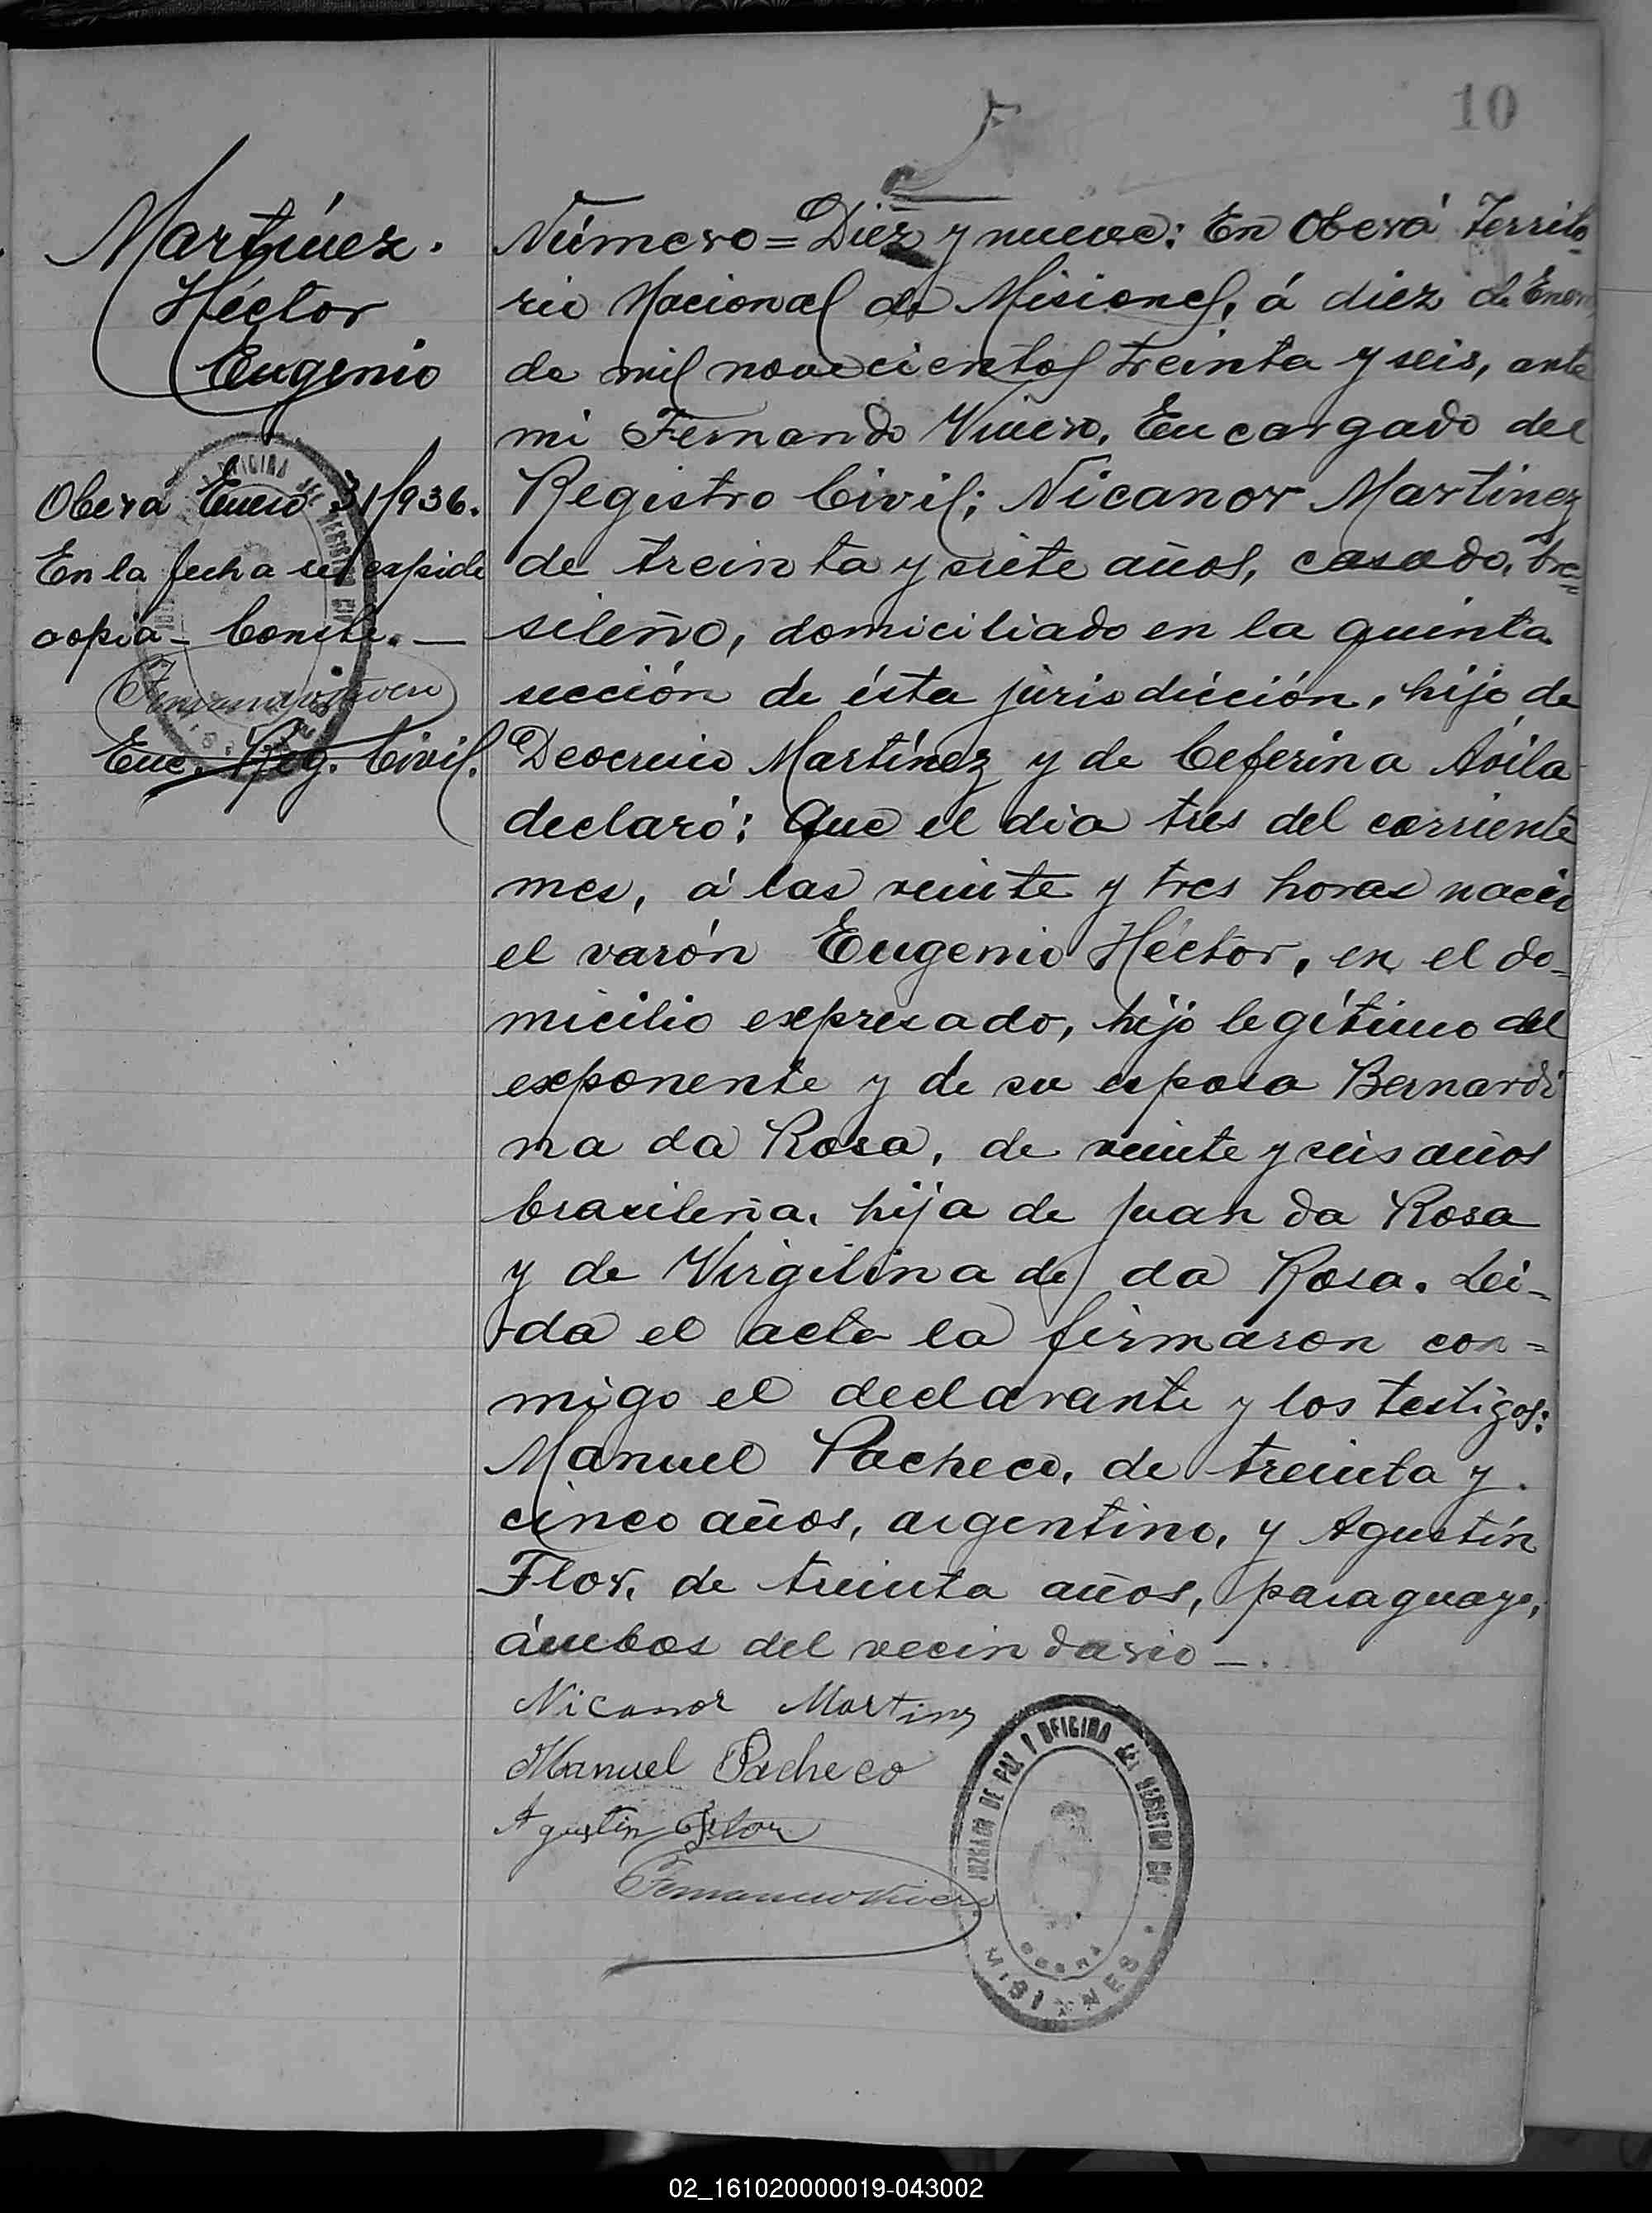 10
Martínez.
Héctor
Eugenio
Oberá Enero 31/936.
En la fecha se expide
copia - Conste. —
Fernando Vivero
Enc. Reg. Civil.
Número = Diez y nueve: En Oberá Territo-
rio Nacional de Misiones, á diez de Enero
de mil novecientos treinta y seis, ante
mi Fernando Vivero, Encargado del
Registro Civil; Nicanor Martinez
de treinta y siete años, casado, bra-
sileño, domiciliado en la quinta
sección de ésta jurisdicción, hijo de
Martínez y de Ceferina Ávila
declaró: Que el día tres del corriente
mes, á las veinte y tres horas nació
el varón Eugenio Héctor, en el do-
micilio expresado, hijo legítimo del
exponente y de su esposa Bernardi
na da Rosa, de veinte y seis años
brasileña, hija de Juan da Rosa
y de Virgilina de da Rosa. Leí-
da el acta la firmaron con=
migo el declarante y los testigos:
Manuel Pacheco, de treinta y
cinco años, argentino, y Agustín
Flor, de treinta años, paraguayo,
ámbos del vecindario —.
Nicanor Martinz
Manuel Pacheco
Agustin Flor
Fernando Vivero
JUZGADO DE PAZ Y OFICINA DEL REGISTRO CIVIL
OBERA
MISIONES
02_161020000019-043002